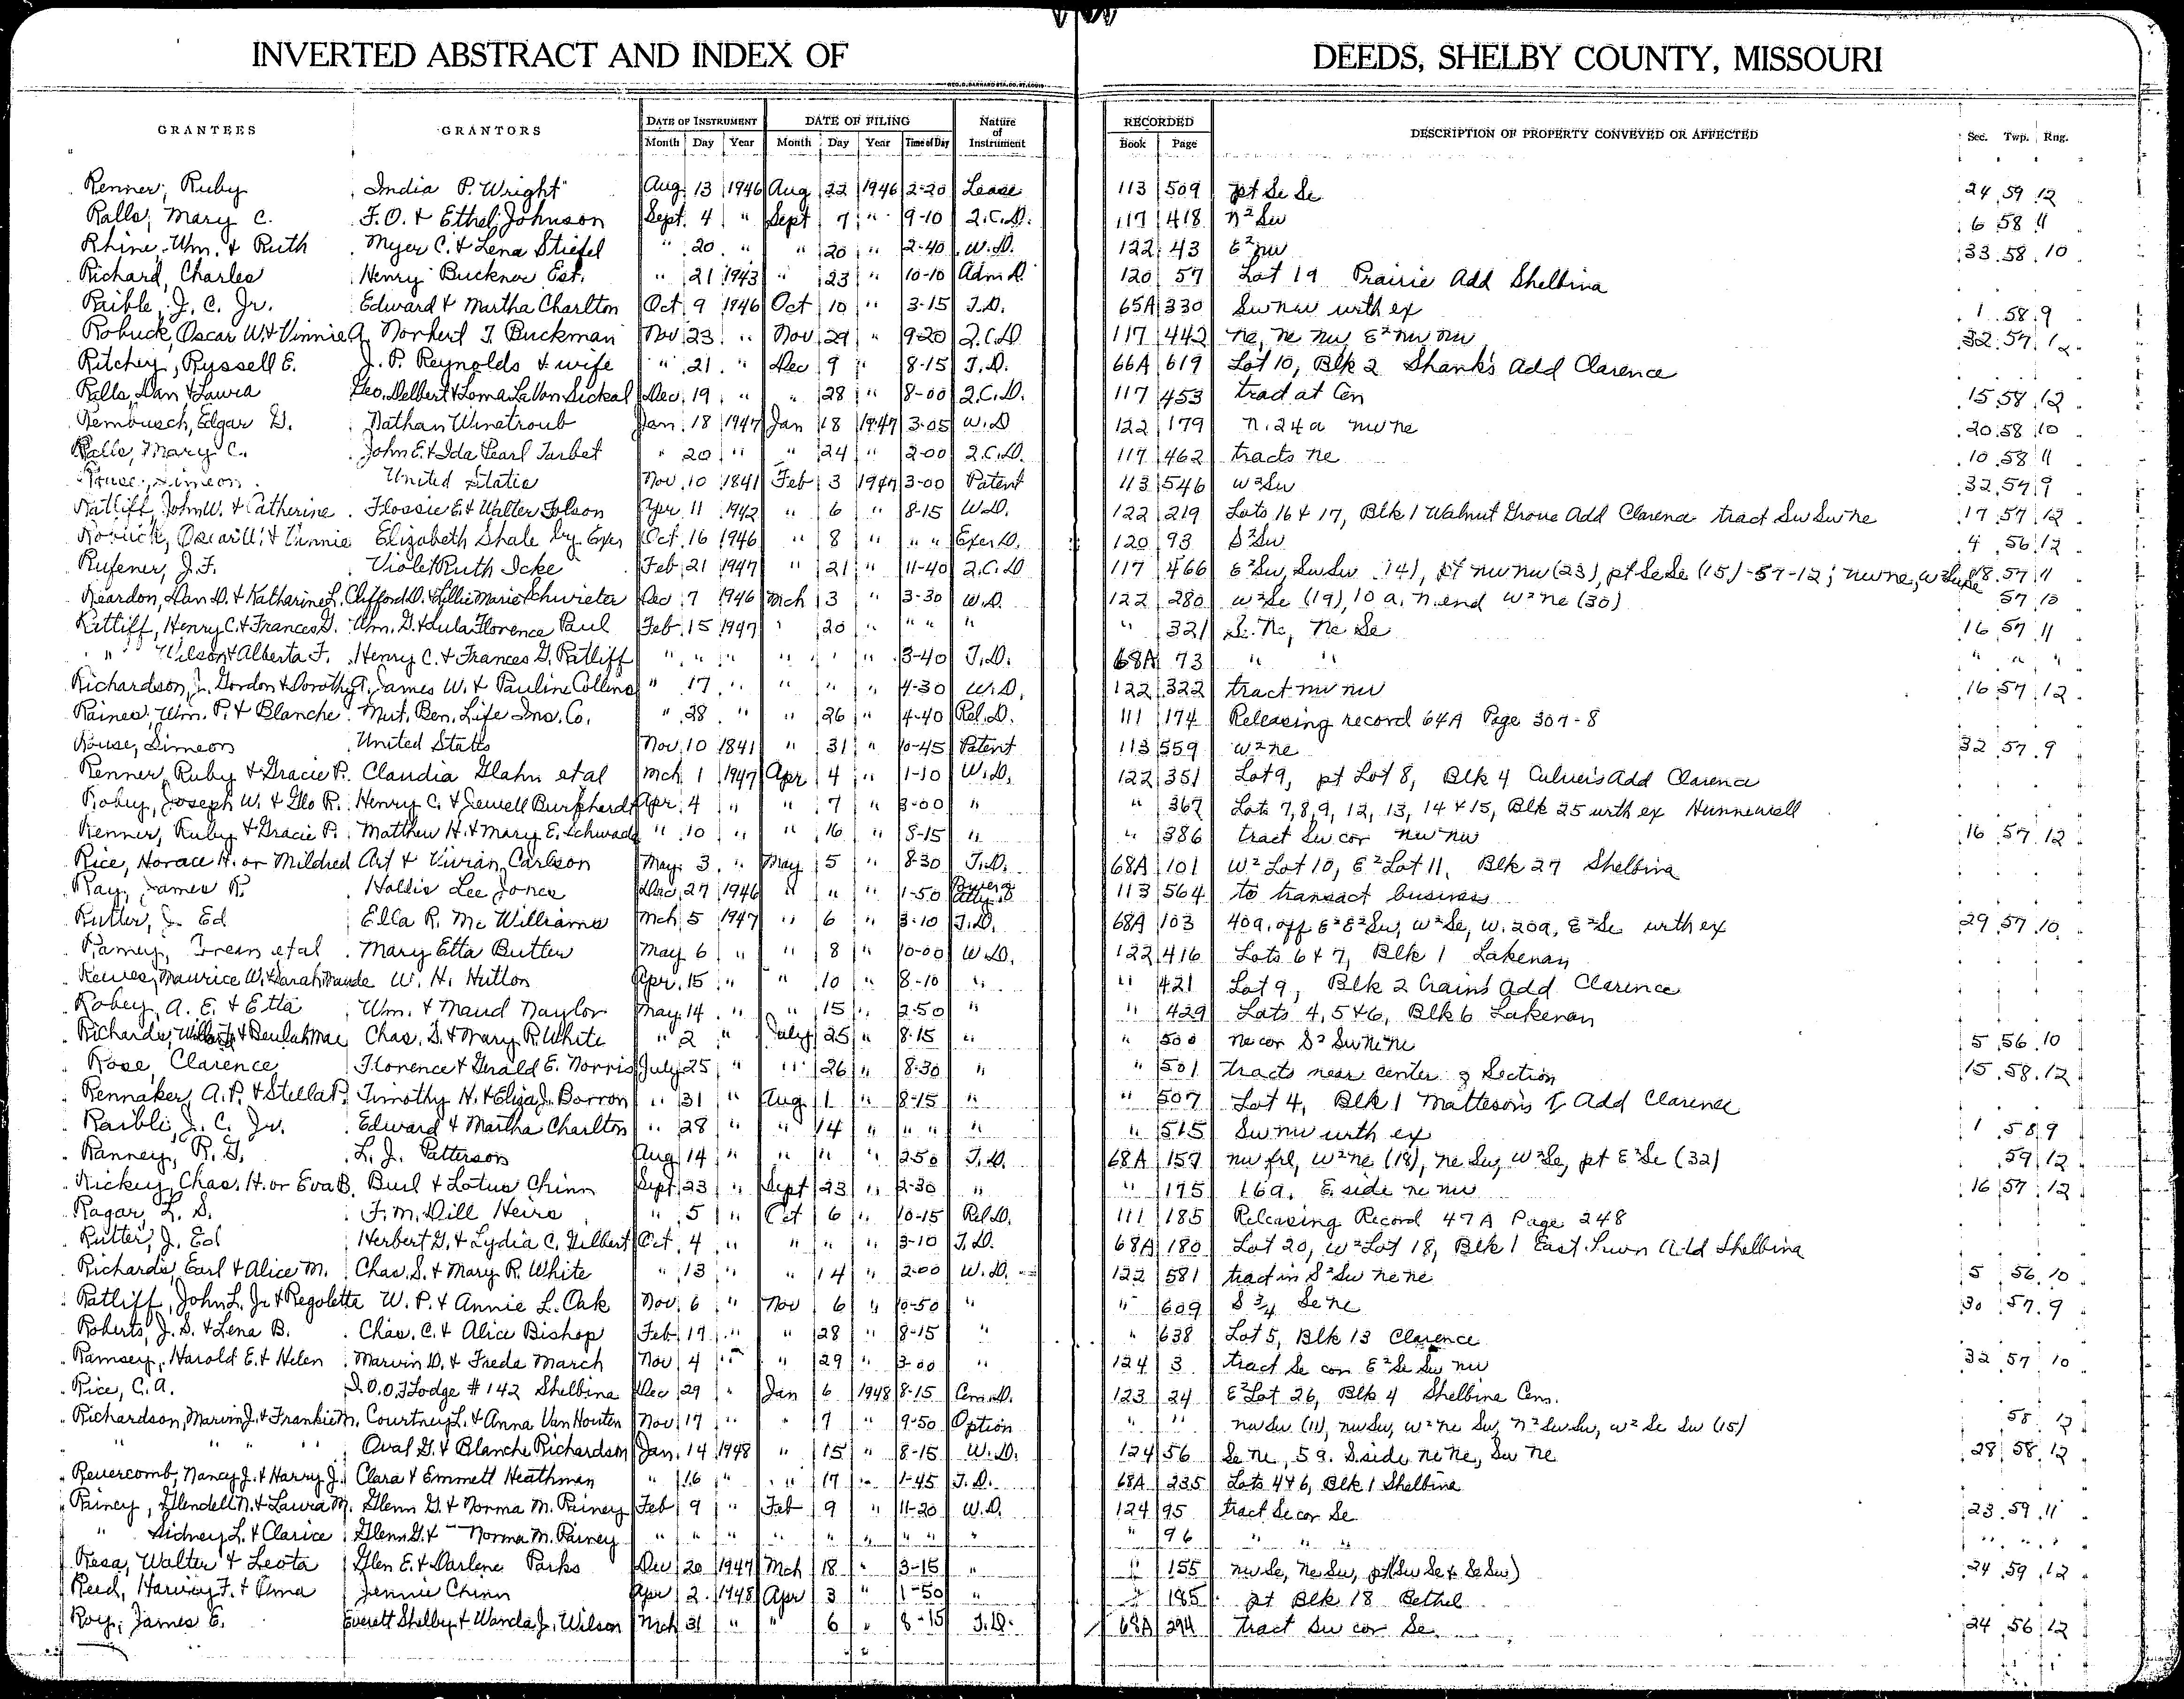 INVERTED ABSTRACT AND INDEX OF DEEDS, SHELBY COUNTY, MISSOURI
GEO. D. BARNARD STA. CO. ST. LOUIS
GRANTEES GRANTORS DATE OF INSTRUMENT DATE OF FILING Nature of Instrument RECORDED DESCRIPTION OF PROPERTY CONVEYED OR AFFECTED Sec. Twp. Rng.
Month Day Year Month Day Year Time of Day Book Page
Renner, Ruby India P. Wright Aug 13 1946 Aug 22 1946 2-20 Lease 113 509 pt Se Se 24 59 12
Ralls, Mary C. F. O. & Ethel Johnson Sept. 4 " Sept 7 " 9-10 Q.C.D. 117 418 N² Sw 6 58 11
Rhine, Wm. & Ruth Myer C. & Lena Stiefel " 20 " " 20 " 2-40 W.D. 122 43 E² nw 33 58 10
Richard, Charles Henry Buckner Est. " 21 1943 " 23 " 10-10 Adm D. 120 57 Lot 19 Prairie Add Shelbina
Raible, J. C. Jr. Edward & Martha Charlton Oct 9 1946 Oct 10 " 3-15 T.D. 65A 330 Sw nw urth ex 1 58 9
Robuck, Oscar W. & Vinnie A. Norbert T. Buckman Nov 23 " Nov 29 " 9-20 Q.C.D. 117 442 ne, ne nw, E² nw nw 32 57 12
Ritchey, Ryssell E. J. P. Reynolds & wife " 21 " Dec 9 " 8-15 T.D. 66A 619 Lot 10, Blk 2 Shank's Add Clarence
Ralls, Dan & Laura Geo. Delbert & Loma LaVon Sickal Dec. 19 " " 28 " 8-00 Q.C.D. 117 453 trad at Cen 15 58 12
Rembusch, Edgar D. Nathan Winetroub Jan. 18 1947 Jan 18 1947 3-05 W.D 122 179 N. 24 a nw ne 20 58 10
Ralls, Mary C. John E. & Ida Pearl Tarbet " 20 " " 24 " 2-00 Q.C.D. 117 462 tracts ne 10 58 11
Rouse, Simeon United States Nov. 10 1841 Feb 3 1947 3-00 Patent 113 546 W² Sw 32 57 9
Ratliff, John W. & Catherine Flossie E. & Walter Folson Apr. 11 1942 " 6 " 8-15 W.D. 122 219 Lots 16 & 17, Blk 1 Walnut Grove Add Clarence tract Sw Sw ne 17 57 12
Robuck, Oscar W. & Vinnie Elizabeth Shale by Exer Oct. 16 1946 " 8 " " " Exer D. 120 93 S² Sw 4 56 12
Rufener, J. F. Violet Ruth Icke Feb 21 1947 " 21 " 11-40 Q.C.D 117 466 E² Sw, Sw Sw (14), pt nw nw (23), pt Se Se (15)-57-12; nw ne, W² Se ne 18 57 11
Reardon, Dan D. & Katharine L. Clifford D. & Lillie Marie Schwieter Dec. 7 1946 Mch 3 " 3-30 W.D. 122 280 W² Se (19), 10 a. N. end W² ne (30) 57 10
Ratliff, Henry C. & Frances G. Wm. G. & Lula Florence Paul Feb. 15 1947 " 20 " " " " " 321 Se Ne, Ne Se 16 57 11
" Wilson & Alberta F. Henry C. & Frances G. Ratliff " " " " " " 3-40 T.D. 68A 73 " " " " "
Richardson, J. Gordon & Dorothy A. James W. & Pauline Collins " 17 " " " " 4-30 W.D. 122 322 tract nw nw 16 57 12
Raines, Wm. P. & Blanche Mut. Ben. Life Ins. Co. " 28 " " 26 " 4-40 Rel. D. 111 174 Releasing record 64A Page 307-8
Rouse, Simeon United States Nov. 10 1841 " 31 " 10-45 Patent 113 559 W² ne 32 57 9
Renner, Ruby & Gracie P. Claudia Glahn etal Mch 1 1947 Apr 4 " 1-10 W.D. 122 351 Lot 9, pt Lot 8, Blk 4 Culver's Add Clarence
Roby, Joseph W. & Glo R. Henry C. & Jewell Burkhardt Apr. 4 " " 7 " 3-00 " " 367 Lots 7,8,9, 12, 13, 14 & 15, Blk 25 urth ex Hunnewell
Renner, Ruby & Gracie P. Matthew H. & Mary E. Schwada " 10 " " 16 " 8-15 " " 386 tract Sw cor nw nw 16 57 12
Rice, Horace H. or Mildred Art & Vivian Carlson May 3 " May 5 " 8-30 T.D. 68A 101 W² Lot 10, E² Lot 11, Blk 27 Shelbina
Ray, James R. Hollis Lee Jones Dec. 27 1946 " " " 1-50 Power of Atty D 113 564 to transact business
Rutter, J. Ed Ella R. McWilliams Mch 5 1947 " 6 " 3-10 T.D. 68A 103 40a. off E² E² Sw, W² Se, W. 20a, E² Se urth ex 29 57 10
Ramey, Irean etal Mary Etta Butler May 6 " " 8 " 10-00 W.D. 122 416 Lots 6 & 7, Blk 1 Lakenan
Reeves, Maurice W. & Sarah Maude W. H. Hutton Apr. 15 " " 10 " 8-10 " " 421 Lot 9, Blk 2 Crain's Add Clarence
Robey, A. E. & Etta Wm. & Maud Naylor May 14 " " 15 " 2-50 " " 429 Lots 4, 5 & 6, Blk 6 Lakenan
Richards, & Beulah Mae Chas. S. & Mary R. White " 2 " July 25 " 8-15 " " 500 ne cor S² Sw ne ne 5 56 10
Rose, Clarence Florence & Gerald E. Norris July 25 " " 26 " 8-30 " " 501 tracts near center of Section 15 58 12
Rennaker, A. P. & Stella P. Timothy H. & Eliza J. Barron " 31 " Aug 1 " 8-15 " " 507 Lot 4, Blk 1 Matteson's Add Clarence
Raible, J. C. Jr. Edward & Martha Charlton " 28 " " 14 " " " " " 515 Sw nw urth ex 1 58 9
Ranney, R. G. L. J. Patterson Aug 14 " " " " 2-50 T.D. 68A 157 nw frl, W² ne (18), ne Se, W² Se, pt E² Se (32) 59 12
Rickey, Chas. H. or Eva B. Burl & Lotus Chinn Sept. 23 " Sept 23 " 2-30 " " 175 16 a. E. side ne nw 16 57 12
Ragar, L. S. F. M. Dill Heirs " 5 " Oct 6 " 10-15 Rel D. 111 185 Releasing Record 47A Page 248
Rutter, J. Ed Herbert G. & Lydia C. Gilbert Oct. 4 " " " " 3-10 T.D. 68A 180 Lot 20, W² Lot 18, Blk 1 East Lawn Add Shelbina
Richards, Earl & Alice M. Chas. S. & Mary R. White " 13 " " 14 " 2-00 W.D. 122 581 tract in S² Sw ne ne 5 56 10
Ratliff, John L. Jr & Regoletta W. P. & Annie L. Oak Nov. 6 " Nov 6 " 10-50 " " 609 S 3/4 Se ne 30 57 9
Roberts, J. S. & Lena B. Chas. C. & Alice Bishop Feb. 17 " " 28 " 8-15 " " 638 Lot 5, Blk 13 Clarence
Ramsey, Harold E. & Helen Marvin D. & Freda March Nov 4 " " 29 " 3-00 " 124 3 tract Se cor E² Se Sw nw 32 57 10
Rice, C. A. I.O.O.F Lodge #142 Shelbina Dec 29 " Jan 6 1948 8-15 Cem. D. 123 24 E² Lot 26, Blk 4 Shelbina Cem.
Richardson, Marvin J. & Frankie M. Courtney L. & Anna Van Houten Nov 17 " " 7 " 9-50 Option " " nw Sw (11), nw Sw, W² ne Sw, N² Sw Sw, W² Se Sw (15) 58 12
" " " " Oval G. & Blanche Richardson Jan. 14 1948 " 15 " 8-15 W.D. 124 56 Se ne, 5 a. S. side ne ne, Sw ne 28 58 12
Revercomb, Nancy J. & Harry J. Clara & Emmett Heathman " 16 " " 17 " 1-45 T.D. 68A 235 Lots 4 & 6, Blk 1 Shelbina
Rainey, Glendell N. & Laura M. Glenn G. & Norma M. Rainey Feb 9 " Feb 9 " 11-20 W.D. 124 95 tract Se cor Se 23 59 11
" Sidney L. & Clarice Glenn G. & Norma M. Rainey " " " " " " " " " " 96 " " " " " "
Resa, Walter & Leota Glen E. & Darlene Parks Dec 20 1947 Mch 18 " 3-15 " " 155 nw Se, ne Sw, pt (Sw Se & Se Sw) 24 59 12
Reed, Harvey F. & Oma Jennie Chinn Apr 2 1948 Apr 3 " 1-50 " " 185 pt Blk 18 Bethel
Roy, James E. Everett Shelby & Wanda J. Wilson Mch 31 " " 6 " 8-15 T.D. 68A 294 tract Sw cor Se 24 56 12